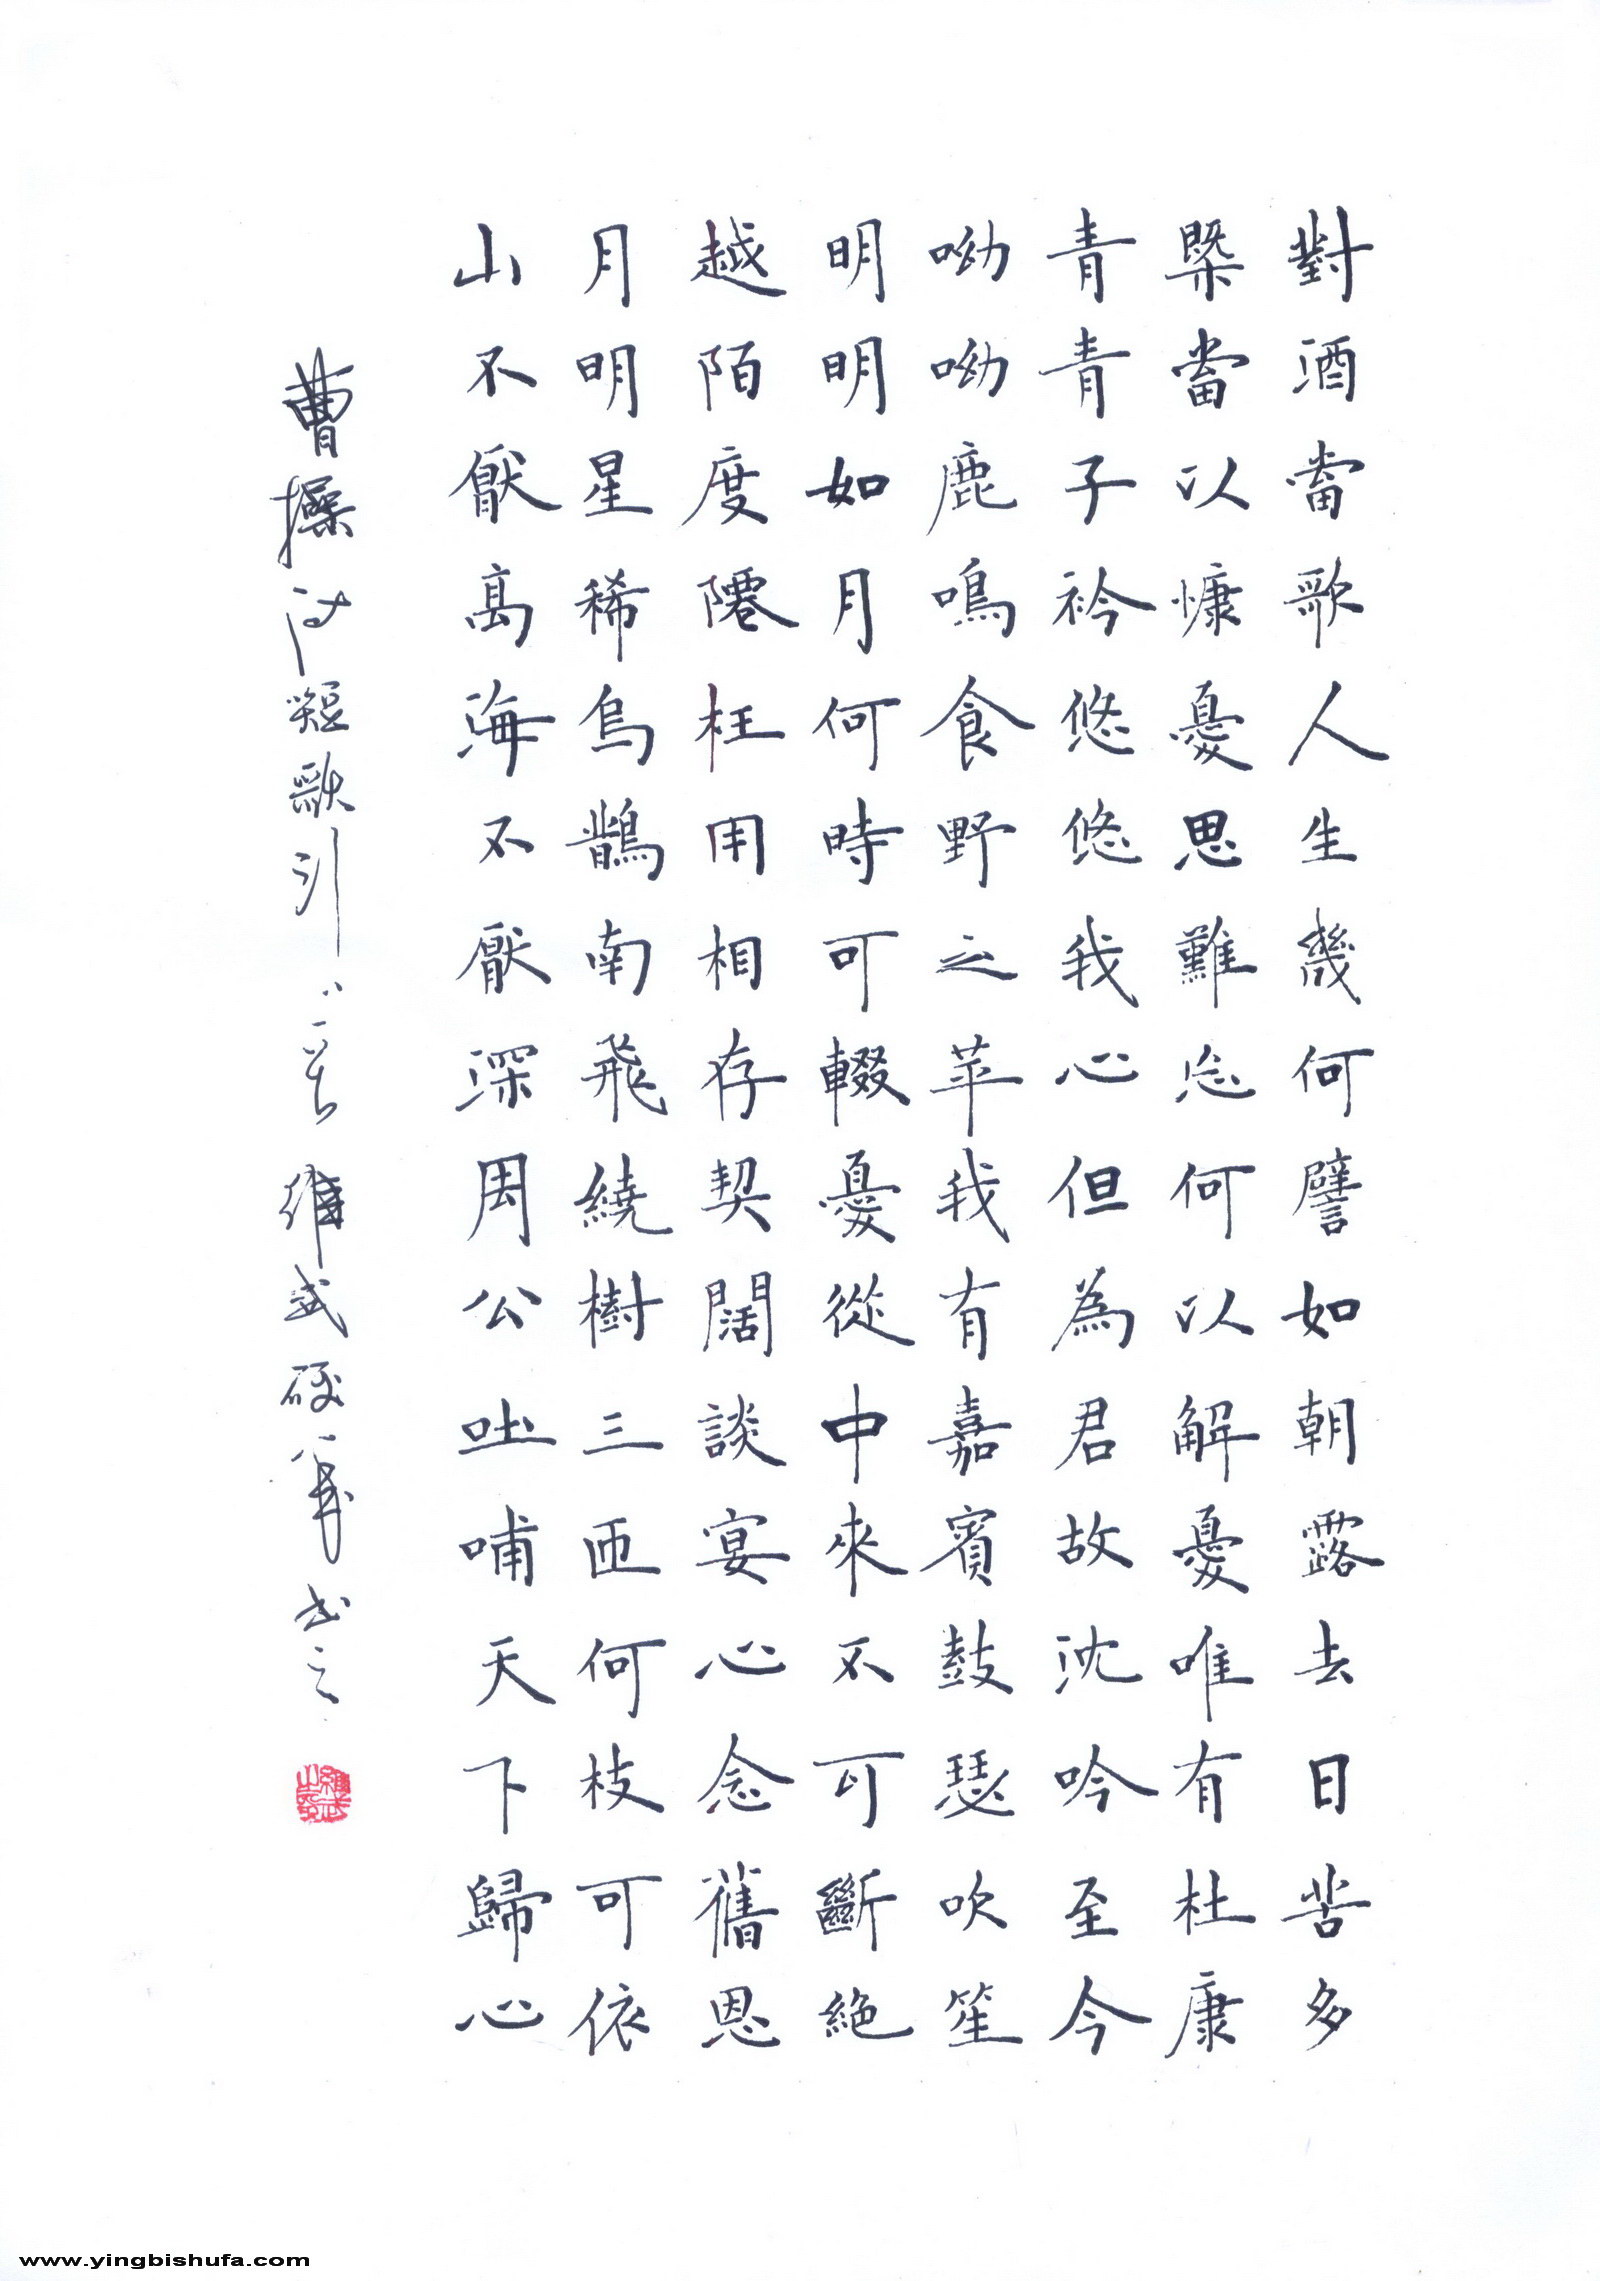 對酒當歌人生幾何譬如朝露去日苦多
槩當以慷憂思難忘何以解憂唯有杜康
青青子衿悠悠我心但為君故沈吟至今
呦呦鹿鳴食野之苹我有嘉賓鼓瑟吹笙
明明如月何時可輟憂從中來不可斷絕
越陌度阡枉用相存契闊談宴心念舊恩
月明星稀烏鵲南飛繞樹三匝何枝可依
山不厭高海不厭深周公吐哺天下歸心
曹操詩短歌行 維武硬筆書之
www.yingbishufa.com